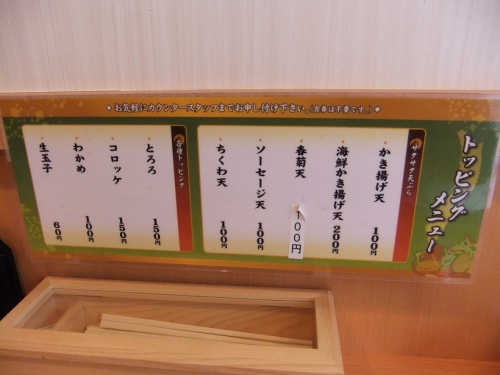 ●お気軽にカウンタースタッフまでお申し付け下さい。(食券は不要です。)●
トッピング
メニュー
サクサク天ぷら
かき揚げ天 100円
海鮮かき揚げ天 200円
春菊天 100円
ソーセージ天 100円
ちくわ天 100円
各種トッピング
とろろ 150円
コロッケ 150円
わかめ 100円
生玉子 60円